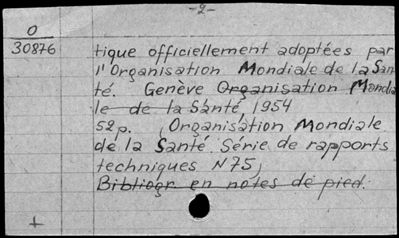 -2-
O
30876
tique officiellement adoptées par
l'Organisation Mondiale de la San
té. Genève Organisation Mondia
le de la Sánté, 1954
52p. (Organisation Mondiale
de la Santé. Série de rapports
techniques N75)
Bibliogr en notes de pied.
+